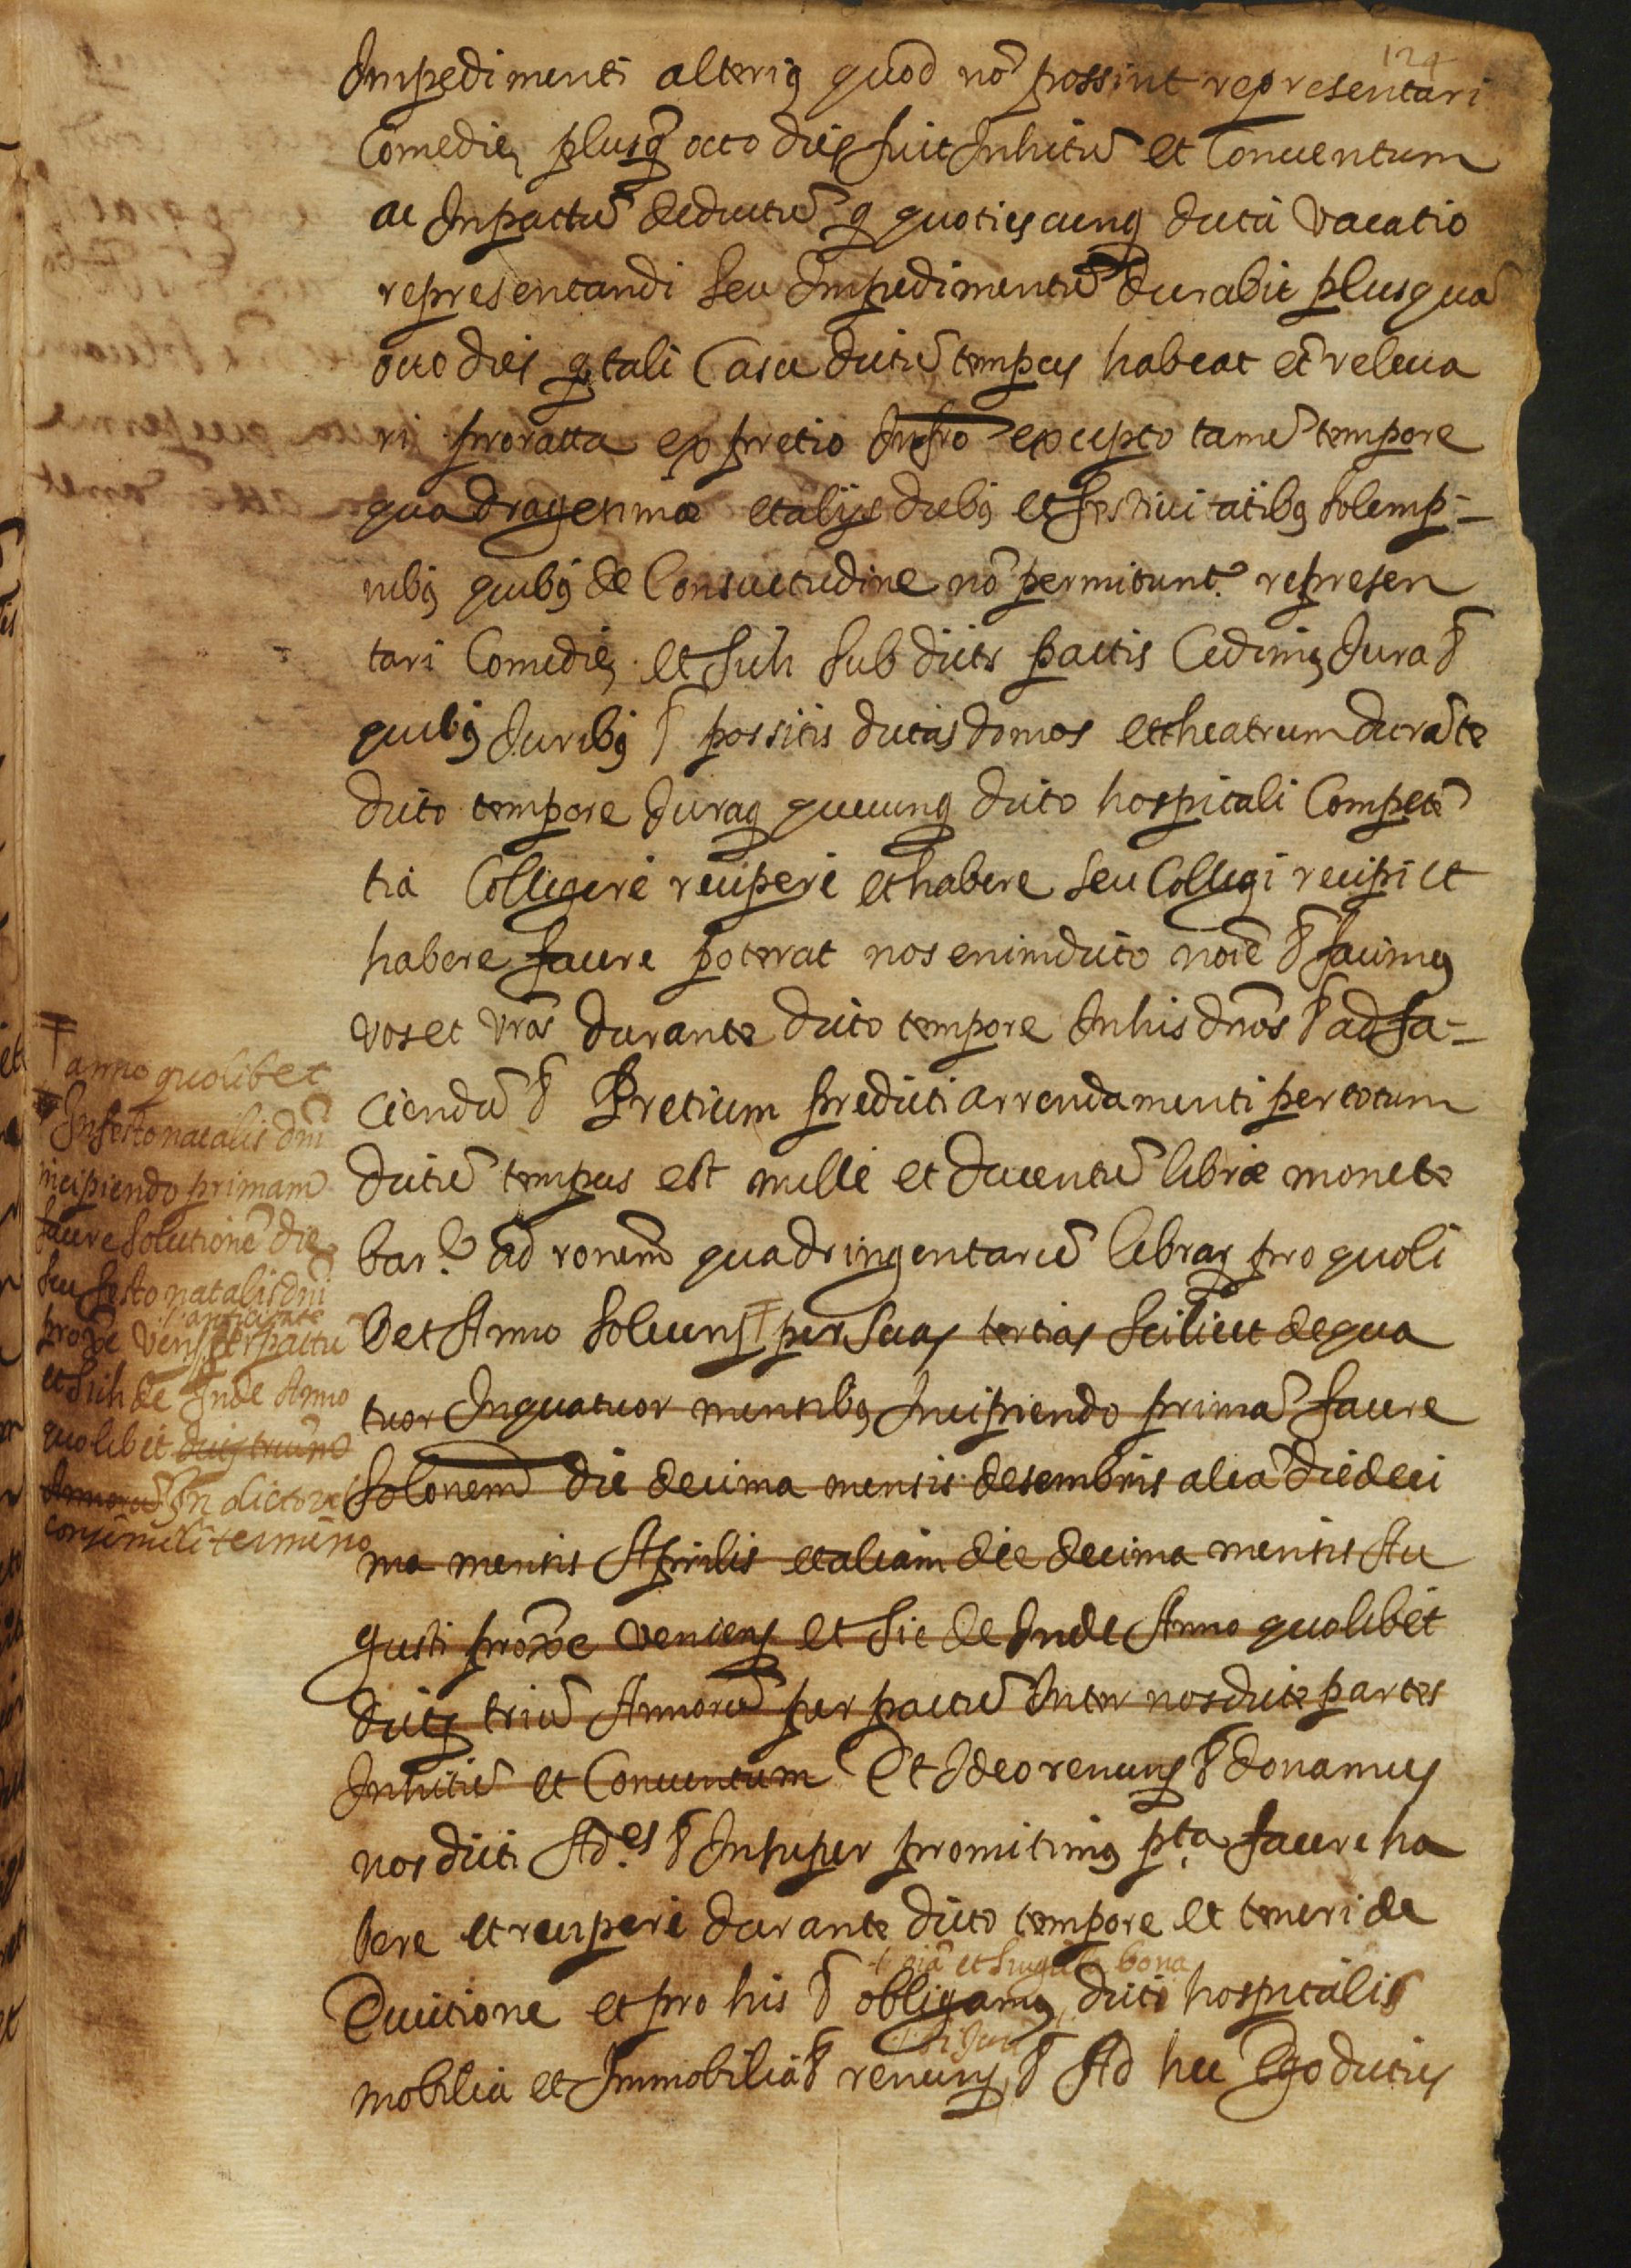 124
Impedimenti alteriꝰ quod nõ possint representari
Comedie plusꝗ octo dies fuit Inhitũ et Conuentum
ac Inpactũ deductũ ꝙ quotiescunqꝫ dicta vacatio
representandi seu Impedimentũ durabit plusquã
octo dies ꝙ tali Casu dictũ tempus habeat et releua
ri proratta ex pretio Infrõ excepto tamẽ tempore
quadragesimæ et alijs diebꝰ et festiuitatibꝰ solemp-
nibꝰ quibꝰ de Consuetudine nõ permitunt.r represen
tari Comedie et Sub dictis pactis Cedimꝰ Jura &
quibꝰ Juribꝰ & possitis dictas domos et theatrum durãte
dicto tempore Juraqꝫ quecunqꝫ dicto hospitali Competẽ
tia Colligere recipere et habere seu Colligi recipi et
habere facere poterat nos enim dicto noiẽ & facimꝰ
vos et vrãs durante dicto tempore Inhis dnõs & ad fa-
ciendũ & Pretium predicti arrendamenti per totum
dictũ tempus est mille et ducentũ libræ monete
bar.e ad ronem quadringentarũ librarꝫ pro quoli
bet Anno soluens per suas tertias scilicet de qua
tuor Inquatuor mensibꝰ Incipiendo primã facere
solonem die decima mensis desembris aliã die deci
ma mensis Aprilis et aliam die decima mensis Au
gusti proxẽ veniens et sic de Inde Anno quolibet
dictꝫ triũ Annorũ per pactũ Inter nos dictẽ partes
Inhitũ et Conuentum Et Ideo renuns & donamus
nos dicti Ad.es & Insuper promitimꝰ p.ta facere ha
bere et recipere durante dicto tempore et teneri de
Euictione et pro his & obligamꝰ dicti hospitalis
oiã et singula bona
mobilia et Immobilia & renuns & Ad hec Ego dictus
anno quolibet
In festo natalis dnĩ
incipiendo primam
facere solutionẽ die
seu festo natalis dnĩ
anticipate
proxẽ vens per pactũ
et sich de Inde Anno
quolibet dictꝫ trium
Annorũ In dicto
consimili termino